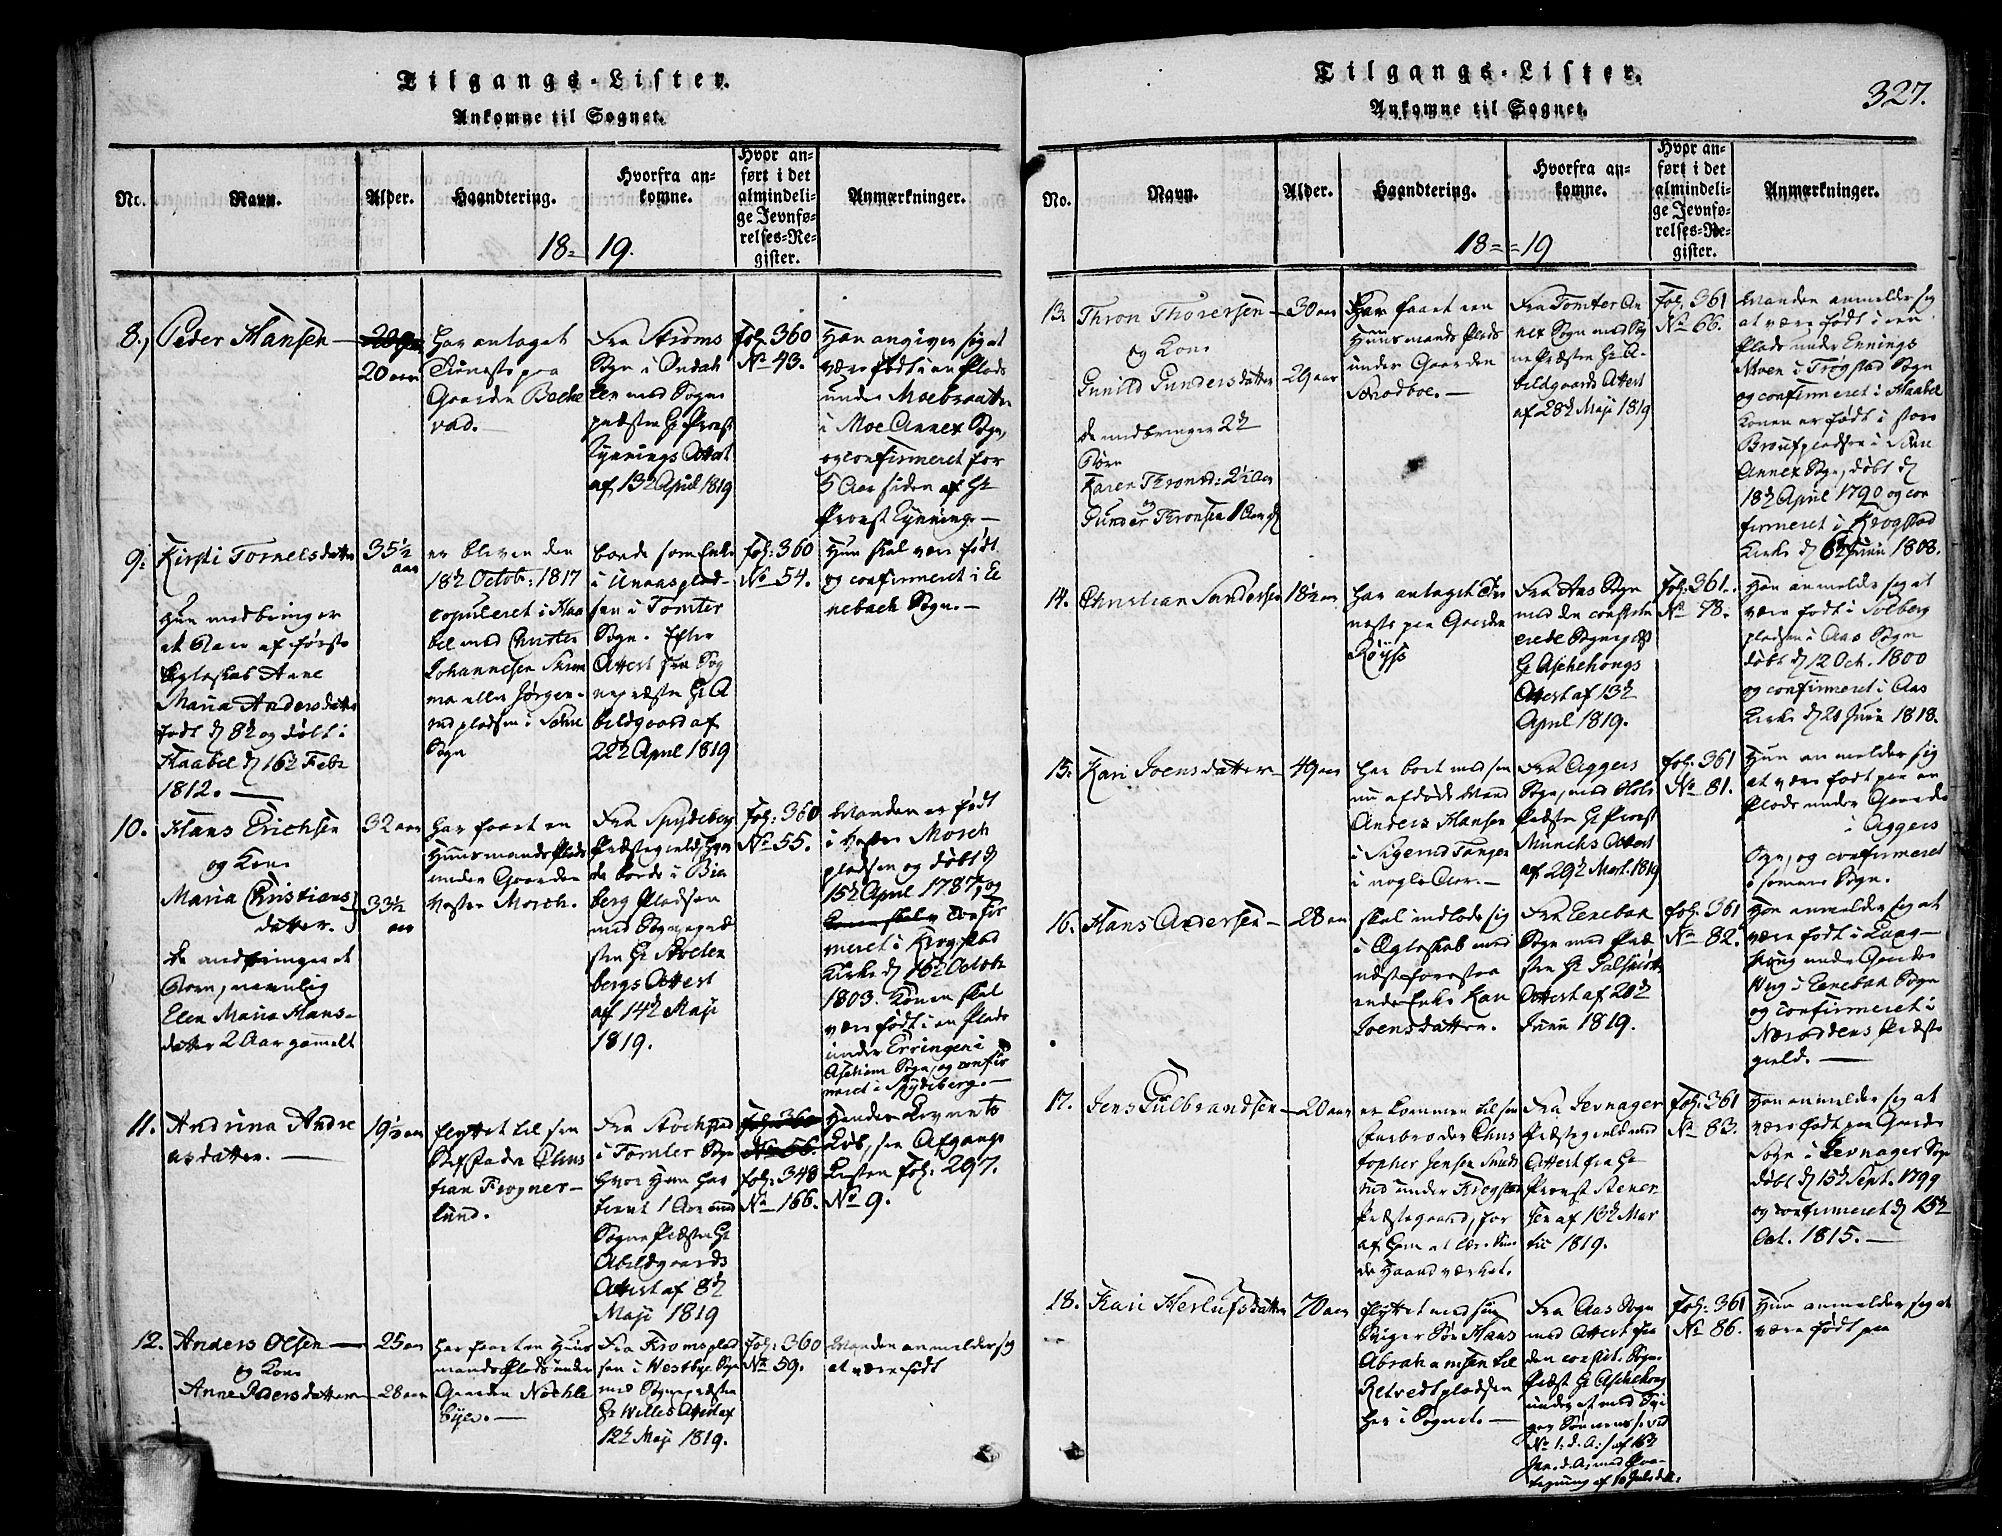 Tilgangs-Lister.
Ankomne til Sognet.
No.
Navn.
Alder.
Haandtering.
Hvorfra an-
komne.
Hvor an-
ført i det
almindeli-
ge Jevnfø-
relses-Re-
gister.
Anmærkninger.
18-19.
8.,
Peder Hansen
20 aar
har antaget
Tieneste paa
Gaarden Bache
vad.
Fra
Sogn i
med Sogne
præsten Hr Provst
Attest
af 13de April 1819
fol. 360
No 43.
Han angiver sig at
være født i en Plads
under
i Moe Annex Sogn,
og confirmeret for
5 Aar siden af Hr
Provst
9.
Kirsti Tornelsdatter
Hun medbringer
et Barn af første
Egteskab Anne
Maria Andersdatter
født d 8de og døbt i
Haabøl d 16de Febr
1812.
35½
aar
er bleven den
18de Octob. 1817
copuleret i Haa
bøl med Christen
Johannesen
ma eller Jørgen-
rudpladsen i
Sogn
boede som Enke
i
sen i Tomter
Sogn. Efter
Attest fra Sog
nepræsten Hr A
bildgaard af
22de April 1819
fol. 360
No 54.
Hun skal være født
og confirmeret i E
nebach Sogn.
10.
Hans Erichsen
og Kone
Maria Christians
datter.
de medbringer et
Barn, nemlig
Elen Maria Hans-
datter 2 Aar gammelt
32 aar
33½
aar
har faaet en
Huusmands Plads
under Gaarden
Vestre Morch.
Fra Spydeberg
Præstegield, hvor
de boede i Bie
berg Pladsen
med Sognepræ
sten Hr Stolten
bergs Attest
af 14de Maji
1819.
fol. 360
No 55.
Manden er født
i Vestre Morch
pladsen og døbt d
15de April 1787, og
confir
meret i Krogstad
Kirke d 16de Octobr
1803. Konen skal
være født i en Plads
under Erringen i
Askim Sogn, og confir
meret i Spydeberg.
11.
Andrina Andre
asdatter.
19½ aar
flyttet til sin
Stiffader Chris
tian Frogner-
lund.
Fra Stochstad
i Tomter Sogn
hvor Hun har
tient 1 Aar med
Sogne Præsten Hr
Abildgaards
Attest af 8de
Maji 1819
fol. 360
No 56.
fol. 348
No 166.
Hendes Levnets
Løb, see Afgangs
Listen fol. 297.
No 9.
12.
Anders Olsen
og Kone
Anne Pedersdatter
25 aar
28 aar
har faaet en Huus
mands Plads under
Gaarden Nøchle
bye.
Fra Kromsplad
sen i Westbye Sogn
med Sognepræsten
Hr Willes Attest af
12de Maji 1819.
fol. 360
No 59.
Manden anmelder sig
at være født
Tilgangs-Lister.
Ankomne til Sognet.
327.
No.
Navn.
Alder.
Haandtering.
Hvorfra an-
komne.
Hvor an-
ført i det
almindeli-
ge Jevnfø-
relses-Re-
gister.
Anmærkninger.
18-19
13.
Thron Thorersen
og Kone
Gunild Gundersdatter
de medbringer 2de
Børn
Karen Thronsd: 2½ Aar
og
Gunder Thronsen 1 Aar
30 aar
29 aar
Har faaet en
Huusmands Plads
under Gaarden
Skodboe.
Fra Tomter An
nex Sogn med Sog
nePræsten Hr A-
bildgaards Attest
af 28de Maji 1819
fol. 361
No 66.
Manden anmelder sig
at være født i en
Plads under Ennings
Moen i Trøgstad Sogn
og confirmeret i Haabøl
Konen er født i store
Brousspladsen i
Annex Sogn, døbt d
18de April 1790 og con
firmeret i Krogstad
Kirke d 6de Junii 1808.
14.
Christian Sandersen
18½ aar
har antaget Tie
neste paa Gaarden
Røyse
Fra Aas Sogn
med den constitu
erede Sognepræst
Hr Aschehougs
Attest af 13de
April 1819.
fol. 361.
No 78.
Han anmelder sig at
være født i Solberg
pladsen i Aas Sogn
døbt d 12 Oct. 1800
og confirmeret i Aas
Kirke d 21 Junii 1818.
15.
Kari Joensdatter
49 aar
har boet med sin
nu afdøde Mand
Anders Hansen
i Sigerud Tangen
i nogle Aar.
Fra Aggers
Sogn, med
Præsten Hr Provst
Munchs Attest
af 29de Mart. 1819
fol. 361
No 81.
Hun anmelder sig
at være født paa en
Plads under Gaarden
i Aggers
Sogn, og confirmeret
i samme Sogn.
16.
Hans Andersen
28 aar
skal indlade sig
i Egteskab med
nestforestaa
ende Enke Kari
Joensdatter.
Fra Enebak
Sogn med Præ
sten Hr
Attest af 20de
Junii 1819.
fol. 361
No 82.
Han anmelder sig at
være født i
under Gaarden
i Enebak Sogn
og confirmeret i
Næsoddens Præste
gield.
17.
Jens Gulbrandsen
20 aar
er kommen til sin
Farbroder Chris
topher Jensen Smids
rud under Krogstad
Præstegaard, for
af ham at lære Sme
de Haandværket.
Fra Jevnager
Præstegield med
Attest fra Hr
Provst Stener
sen af 13de Mar
tii 1819.
fol. 361
No 83.
Han anmelder sig at
være født paa Gaarden
Sogn i Jevnager Sogn
døbt d 15de Sept. 1799
og confirmeret d 15de
Oct. 1815.
18.
Kari Herlufsdatter
70 aar
flyttet med sin
Søn Hans
Abrahamsen til
Retvedtpladsen
her i Sognet.
Fra Aas Sogn
med Attest fra
den constit. Sogne
Præst Hr Aschehoug
No 1. d. A. af 16de
Jan. d. A. med Paa-
tegning af 10 Julii d. A.
fol. 361
No 86.
Hun anmelder sig at
være født paa